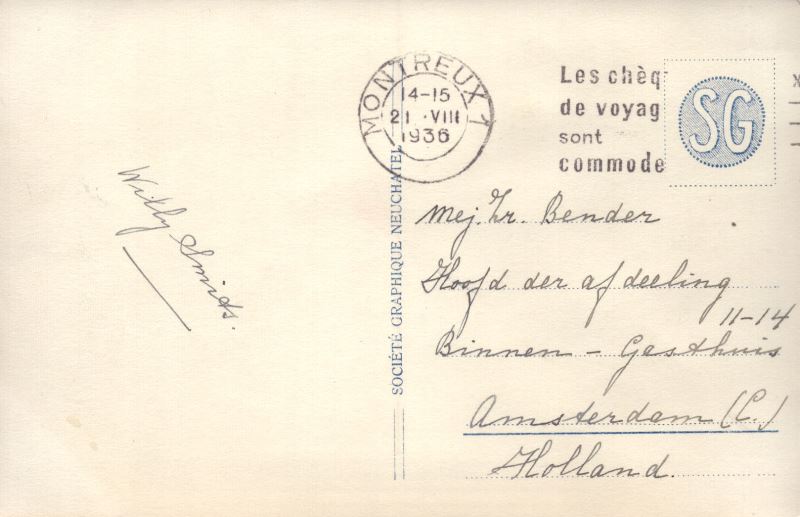 Willy Smids.
SOCIÉTÉ GRAPHIQUE NEUCHATEL
MONTREUX 1
14-15
21.VIII
1936
Les chèq
de voyag
sont
commode
SG
Mej. Zr. Bender
Hoofd der afdeeling
11-14
Binnen - Gasthuis
Amsterdam (C.)
Holland.